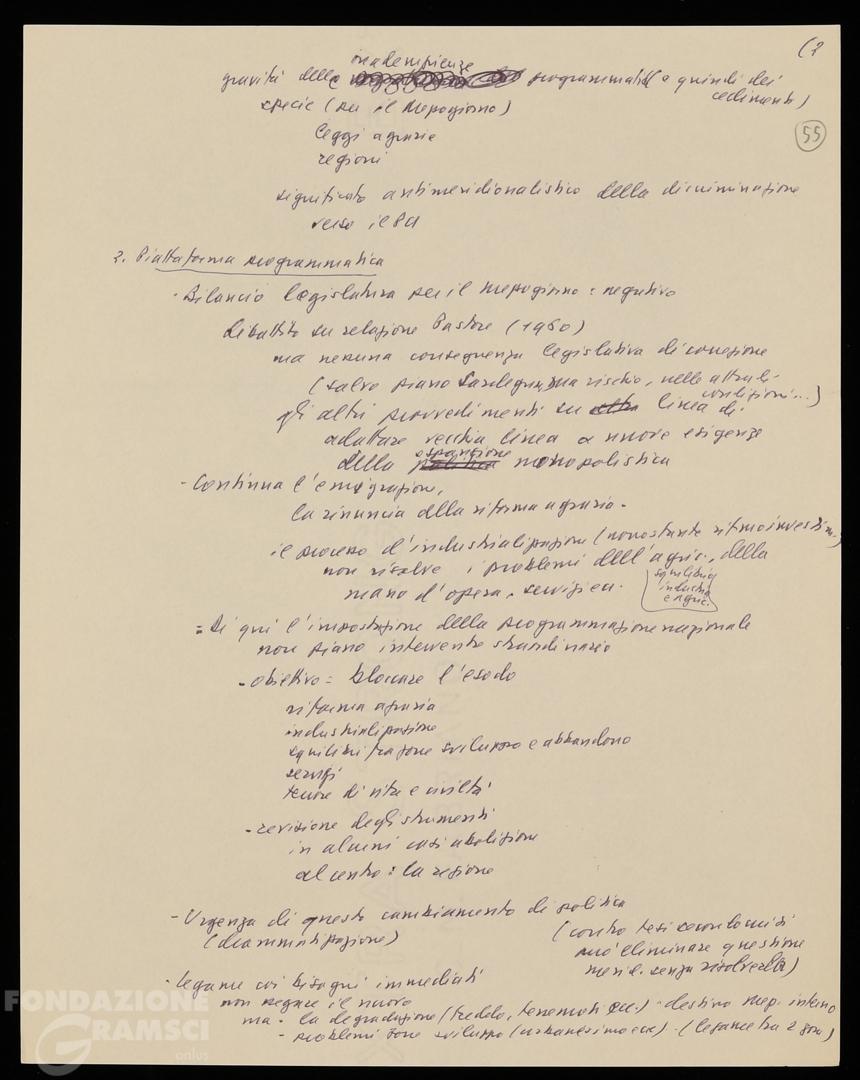 (2
inadempienze
gravità delle programmatiche e quindi dei
cedimenti)
specie (per il Mezogiorno)
leggi agrarie
regioni
55
significato antimeridionalistico della discriminazione
verso il PCI
2. Piattaforma programmatica
- Bilancio legislatura per il Mezogiorno : negativo
dibattito su relazione Pastore (1960)
ma nessuna conseguenza legislativa di correzione
(salvo piano Sardegna, ma rischio, nelle attuali
condizioni...)
gli altri provvedimenti su linea di
adattare vecchia linea a nuove esigenze
della espansione monopolistica
- Continua l'emigrazione,
la rinuncia alla riforma agraria -
il processo d'industrializazione (nonostante ritmo investim.)
non risolve i problemi dell'agric., della
mano d'opera,
squilibrio
industria
e agric.
= Di qui l'impostazione della programmazione nazionale
non piano intervento straordinario
- obiettivo = bloccare l'esodo
riforma agraria
industrializazione
squilibri tra zone sviluppo e abbandono
servizi
tenore di vita e civiltà
- revisione degli strumenti
in alcuni casi abolizione
al centro : la regione
- Urgenza di questo cambiamento di politica
(drammatizazione)
(contro tesi secondo cui si
può eliminare questione
merid. senza risolverla)
- legame coi bisogni immediati
non negare il nuovo
ma - la degradazione (freddo, terremoti ecc.) - destino Mez. interno
- problemi zone sviluppo (urbanesimo ecc) - (legame tra 2 zone)
FONDAZIONE
GRAMSCI
onlus